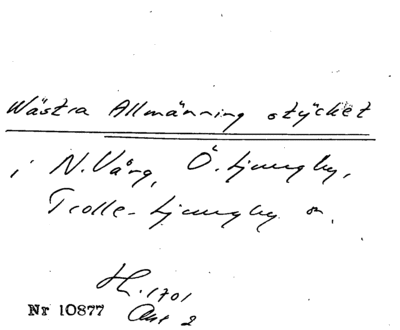 Wästra Allmänning stycket
i N. Vång, Ö. Ljungby,
Trolle-Ljungby sn.
H. 1701
Nr 10877 Akt 2